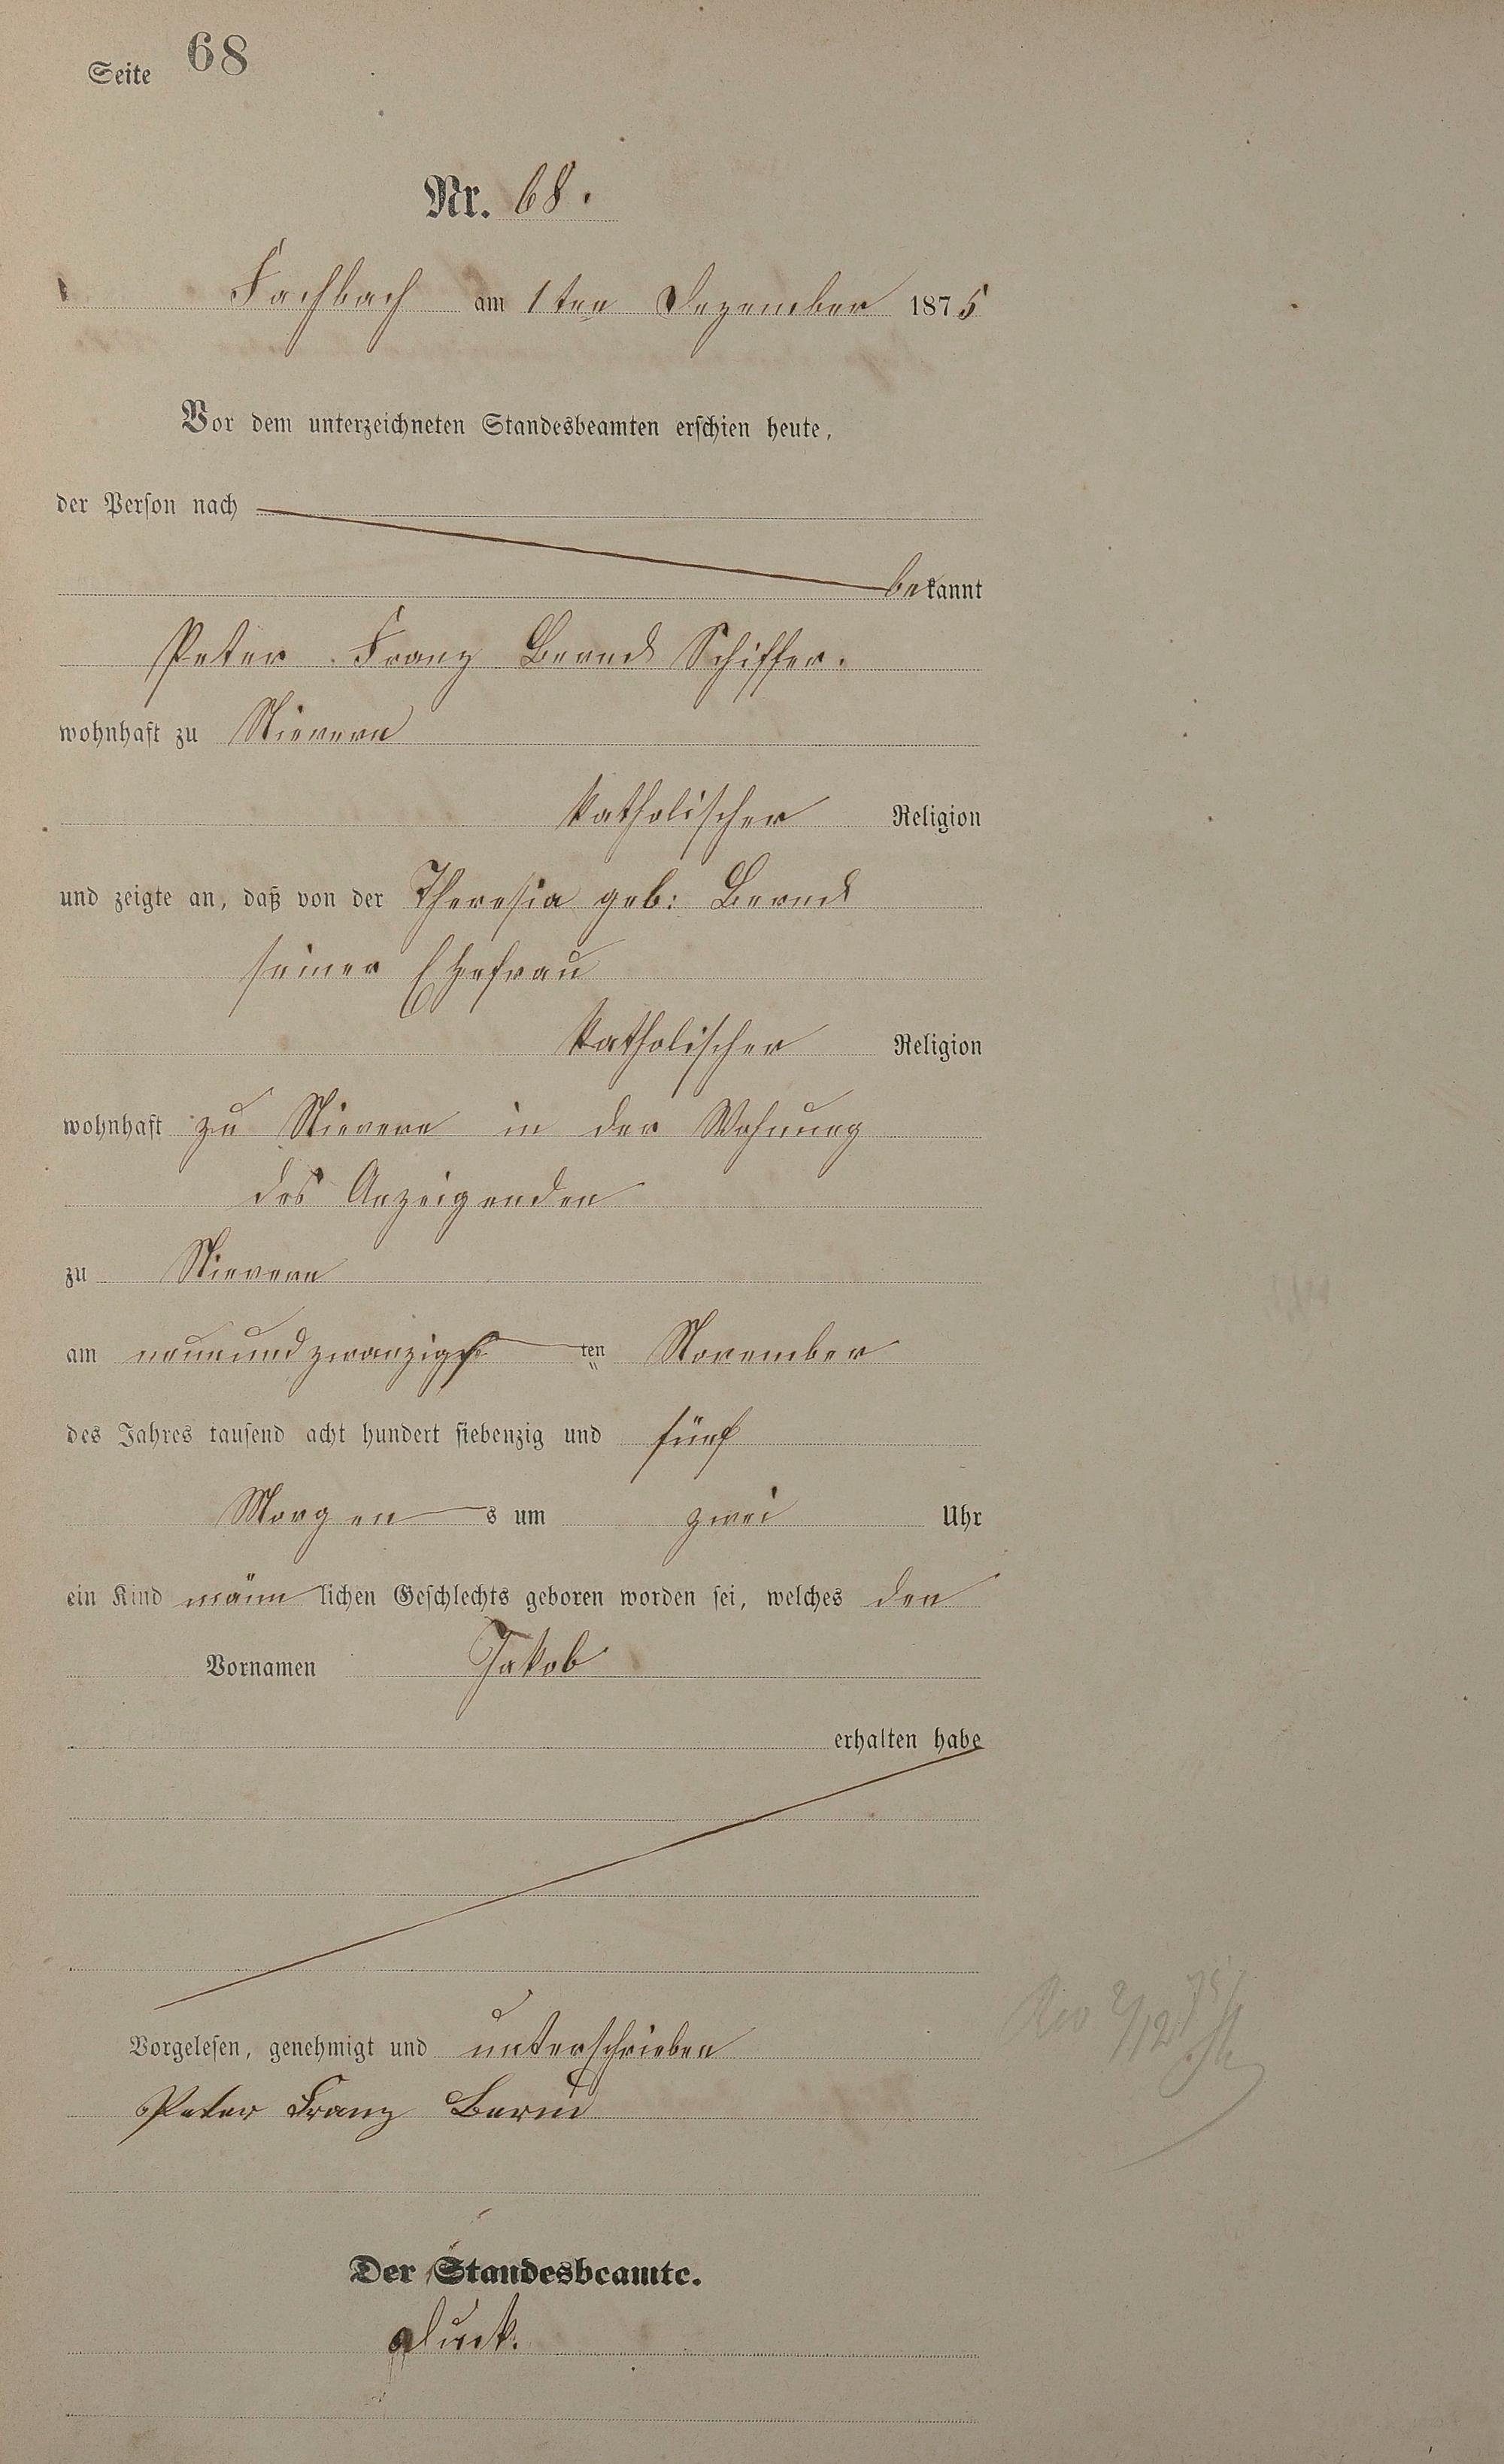 Seite 68
Nr. 68.
Fachbach am 1ten Dezember 1875
Vor dem unterzeichneten Standesbeamten erschien heute,
der Person nach
bekannt
Peter Franz Bernd Schiffer.
wohnhaft zu Nievern
katholischer Religion
und zeigte an, daß von der Theresia geb: Bernd
seiner Ehefrau
katholischer Religion
wohnhaft zu Nievern in der Wohnung
des Anzeigenden
zu Nievern
am neunundzwanzigsten November
des Jahres tausend acht hundert siebenzig und fünf
Morgens um zwei Uhr
ein Kind männlichen Geschlechts geboren worden sei, welches den
Vornamen Jakob
erhalten habe
Vorgelesen, genehmigt und unterschrieben
Peter Franz Bernd
Rev 2/12 75
Der Standesbeamte.